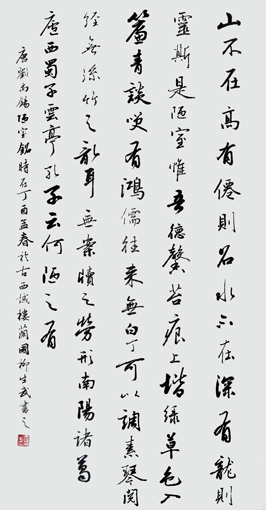 山不在高有僊則名水不在深有龍則
靈斯是陋室惟吾德馨苔痕上堦綠草色入
簾青談咲有鴻儒往來無白丁可以調素琴閱
經無絲竹之亂耳無案牘之勞形南陽諸葛
廬西蜀子雲亭孔子云何陋之有
唐劉禹錫陋室銘時在丁酉孟春於古西域樓蘭國柳生武書之